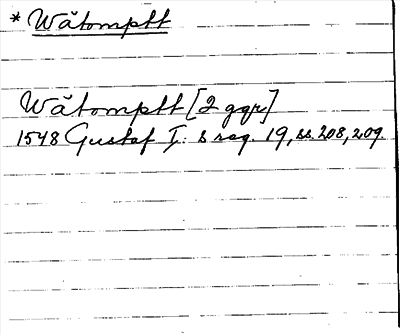 * Wåtomptt
Wåtomptt [2 ggr]
1548 Gustaf I:s reg. 19, ss. 208, 209.